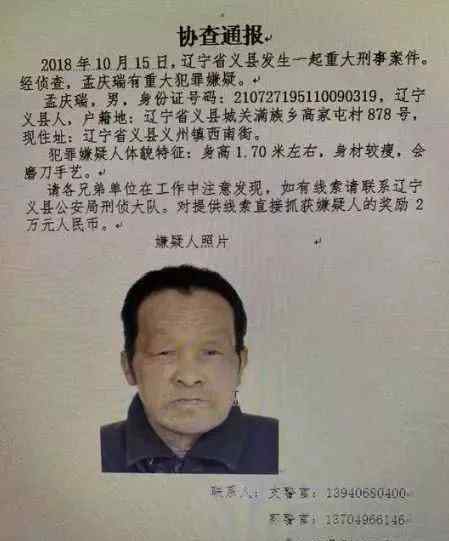 协查通报
2018 年 10 月 15 日,辽宁省义县发生一起重大刑事案件。
经侦查，孟庆瑞有重大犯罪嫌疑。
孟庆瑞，男，身份证号码：210727195110090319，辽宁
义县人，户籍地：辽宁省义县城关满族乡高家屯村 878 号，
现住址：辽宁省义县义州镇西南街。
犯罪嫌疑人体貌特征：身高 1.70 米左右，身材较瘦，会
磨刀手艺。
请各兄弟单位在工作中注意发现，如有线索请联系辽宁
义县公安局刑侦大队。对提供线索直接抓获嫌疑人的奖励 2
万元人民币。
嫌疑人照片
联系人：警官：13940680400
警官：13704966146